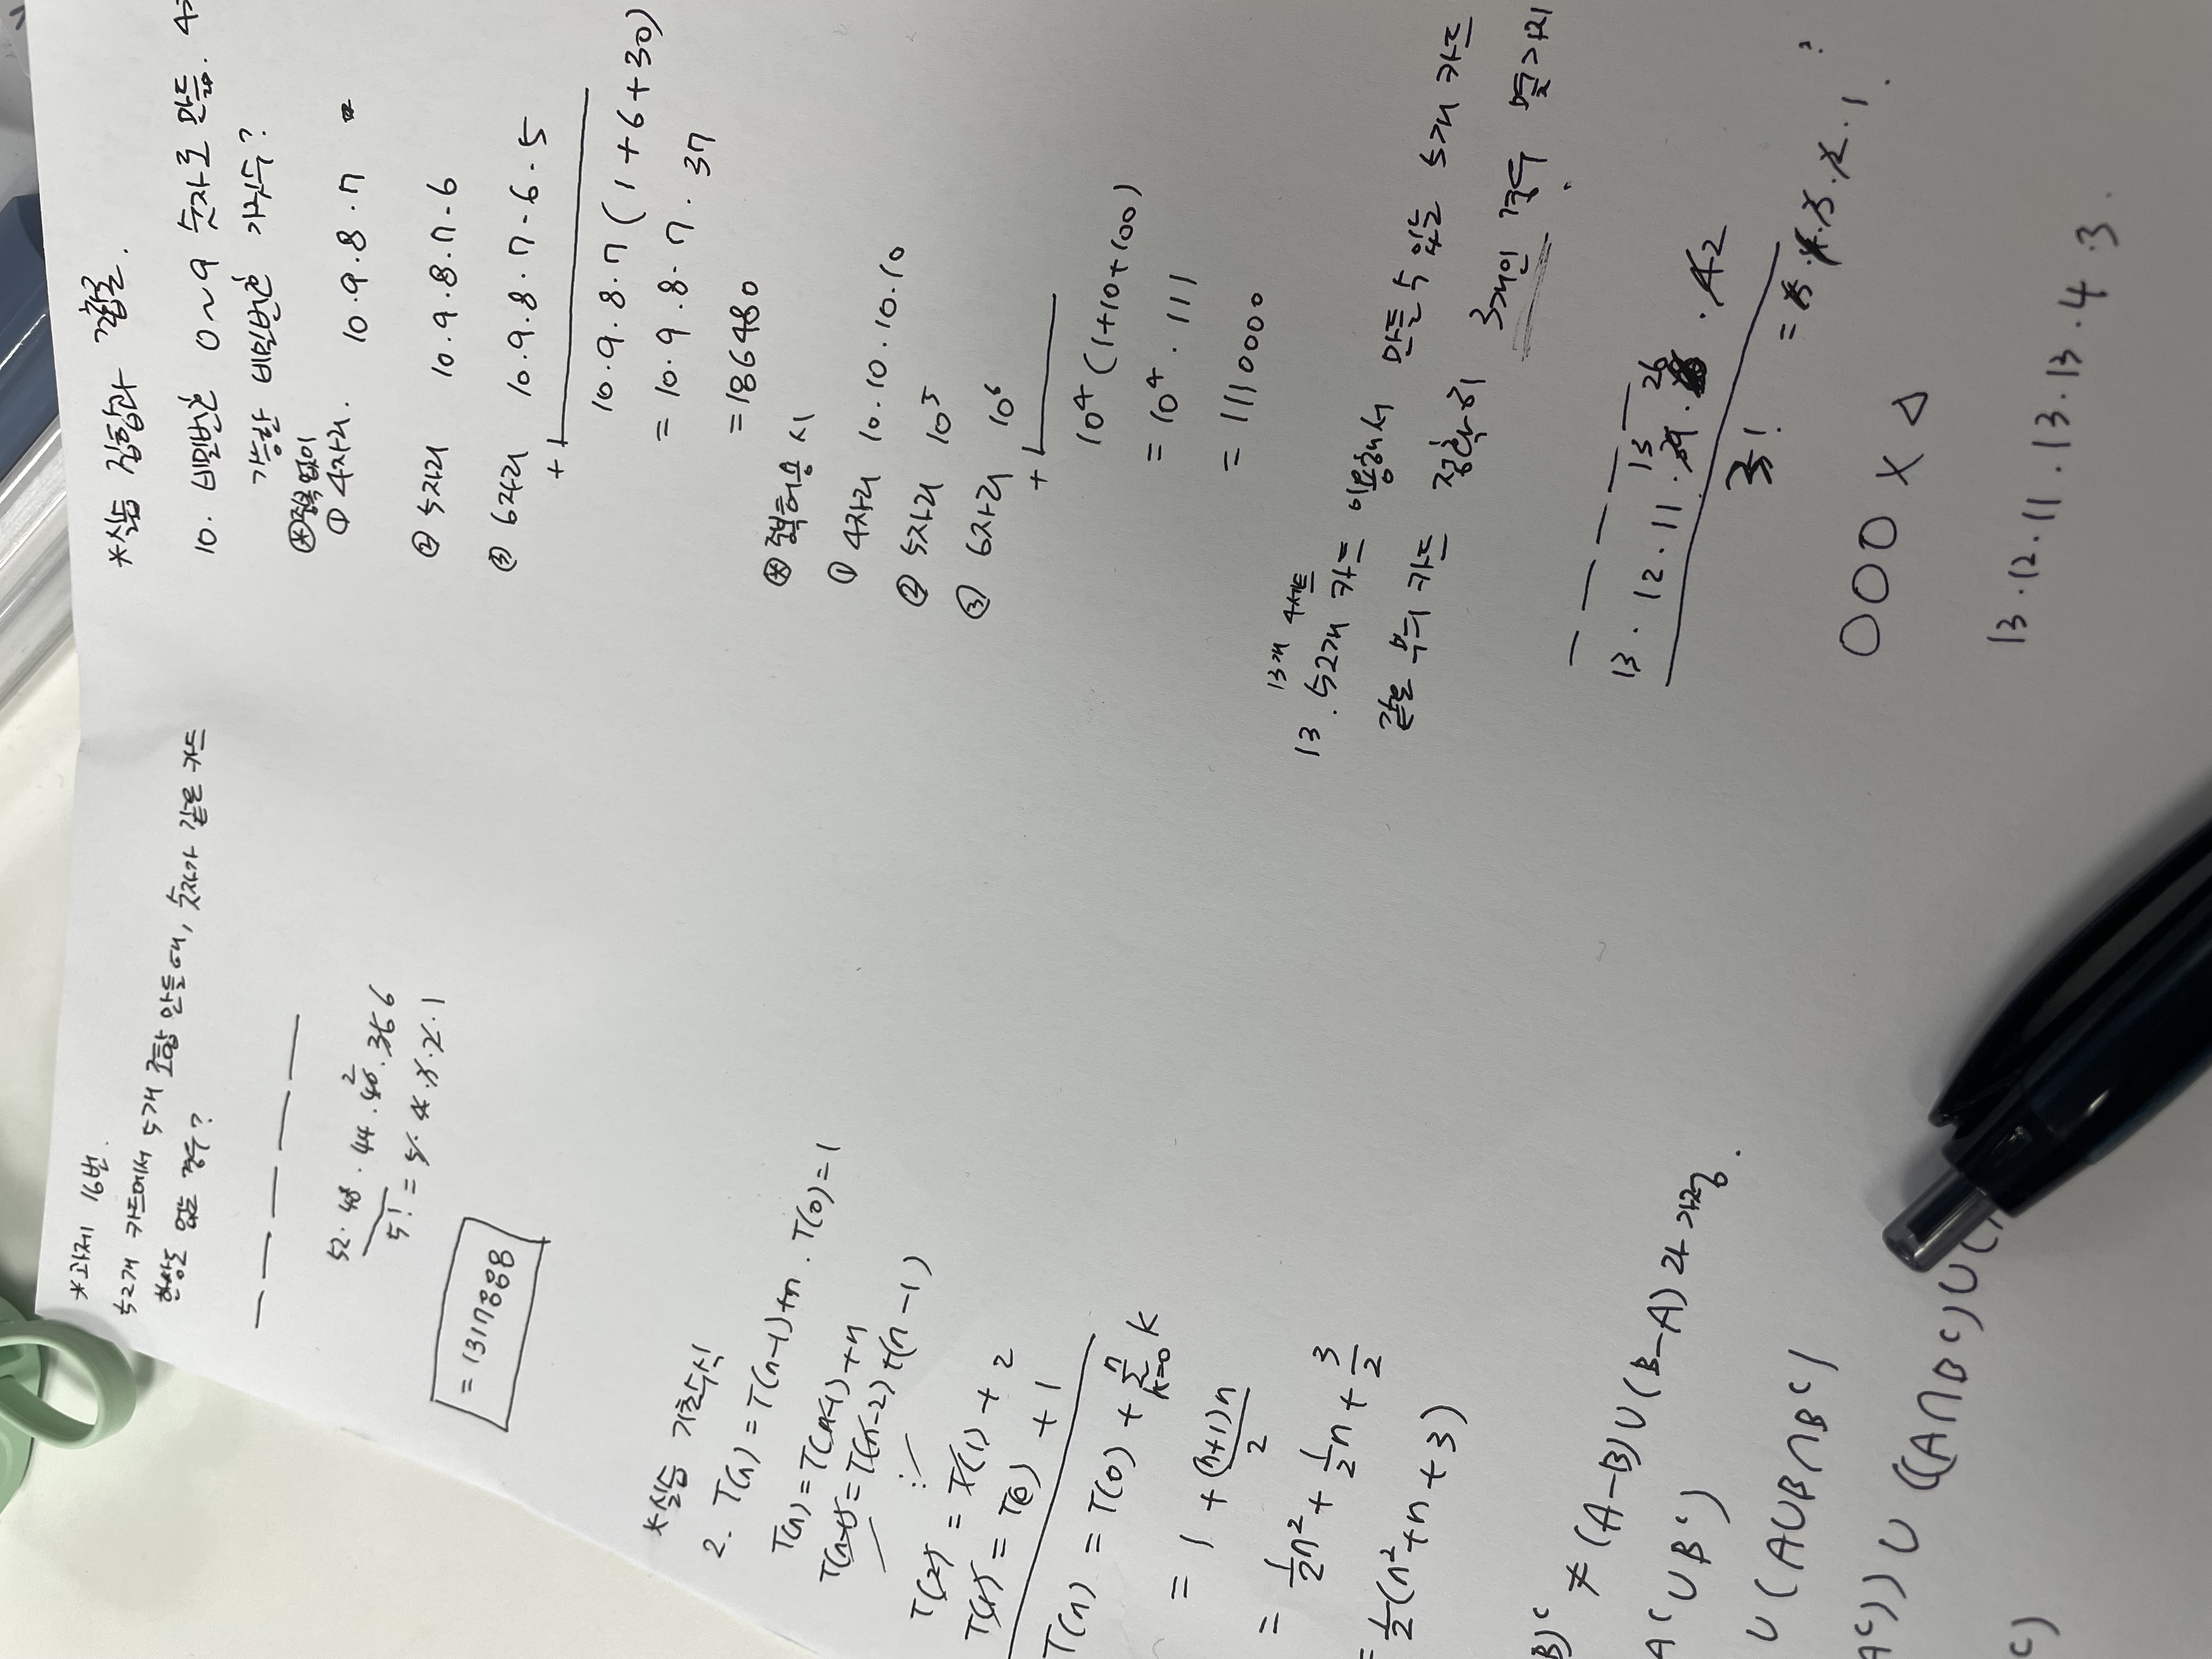 *과제 16번.
52개 카드에서 5개 조합 만들 때, 숫자가 같은 카드
한쌍도 없는 경우?
52. 48. 44. 40. 36 6
2
5! = 5. 4. 3. 2. 1
= 1317888
*실습 기초수식
2. T(n) = T(n-1)+n. T(0)=1
T(n) = T(n-1) + n
T(n-1) = T(n-2) + (n-1)
⋮
T(2) = T(1) + 2
T(1) = T(0) + 1
T(n) = T(0) + Σ k
n
k=0
= 1 + (n+1)n
2
= 1/2 n² + 1/2 n + 3/2
= 1/2 (n² + n + 3)
B)ᶜ ≠ (A-B)∪(B-A)라 가정.
Aᶜ∪Bᶜ)
∪(A∪B∩Bᶜ)
Aᶜ))∪((A∩Bᶜ)∪(
c)
*실습 집합과
10. 비밀번호 0~9 숫자로 만듦. 4
가능한 비밀번호 가짓수?
* 중복 없이
① 4자리. 10.9.8.7 =
② 5자리 10.9.8.7.6
③ 6자리 10.9.8.7.6.5
+
10.9.8.7(1+6+30)
= 10.9.8.7.37
= 186480
* 중복허용 시
① 4자리 10.10.10.10
② 5자리 10⁵
③ 6자리 10⁶
+
10⁴(1+10+100)
= 10⁴.111
= 1110000
13개 4세트
13. 52개 카드 이용해서 만들 수 있는 5개 카드
같은 무늬 카드 정확히 3개인 경우 몇가지
13 26
13. 12. 11. 39. . 4 2
3! = 5. 4. 3. 2. 1
?
OOO X △
13.12.11.13.13.4.3.